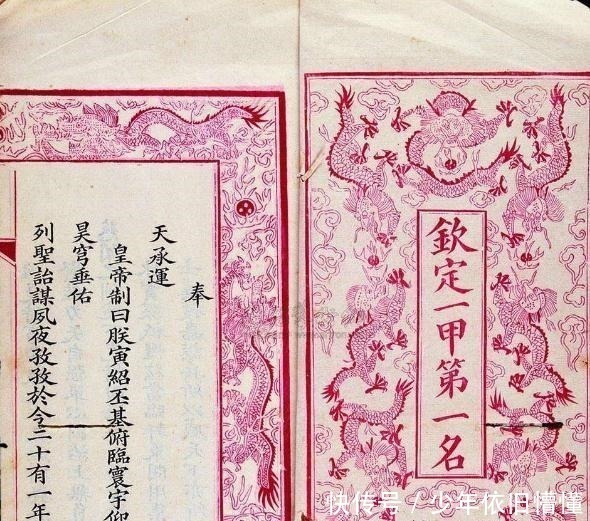 欽定一甲第一名
奉
天承運
皇帝制曰朕寅紹丕基俯臨寰宇仰
昊穹垂佑
列聖詒謀夙夜孜孜於今二十有一年
快传号／少年依旧懵懂